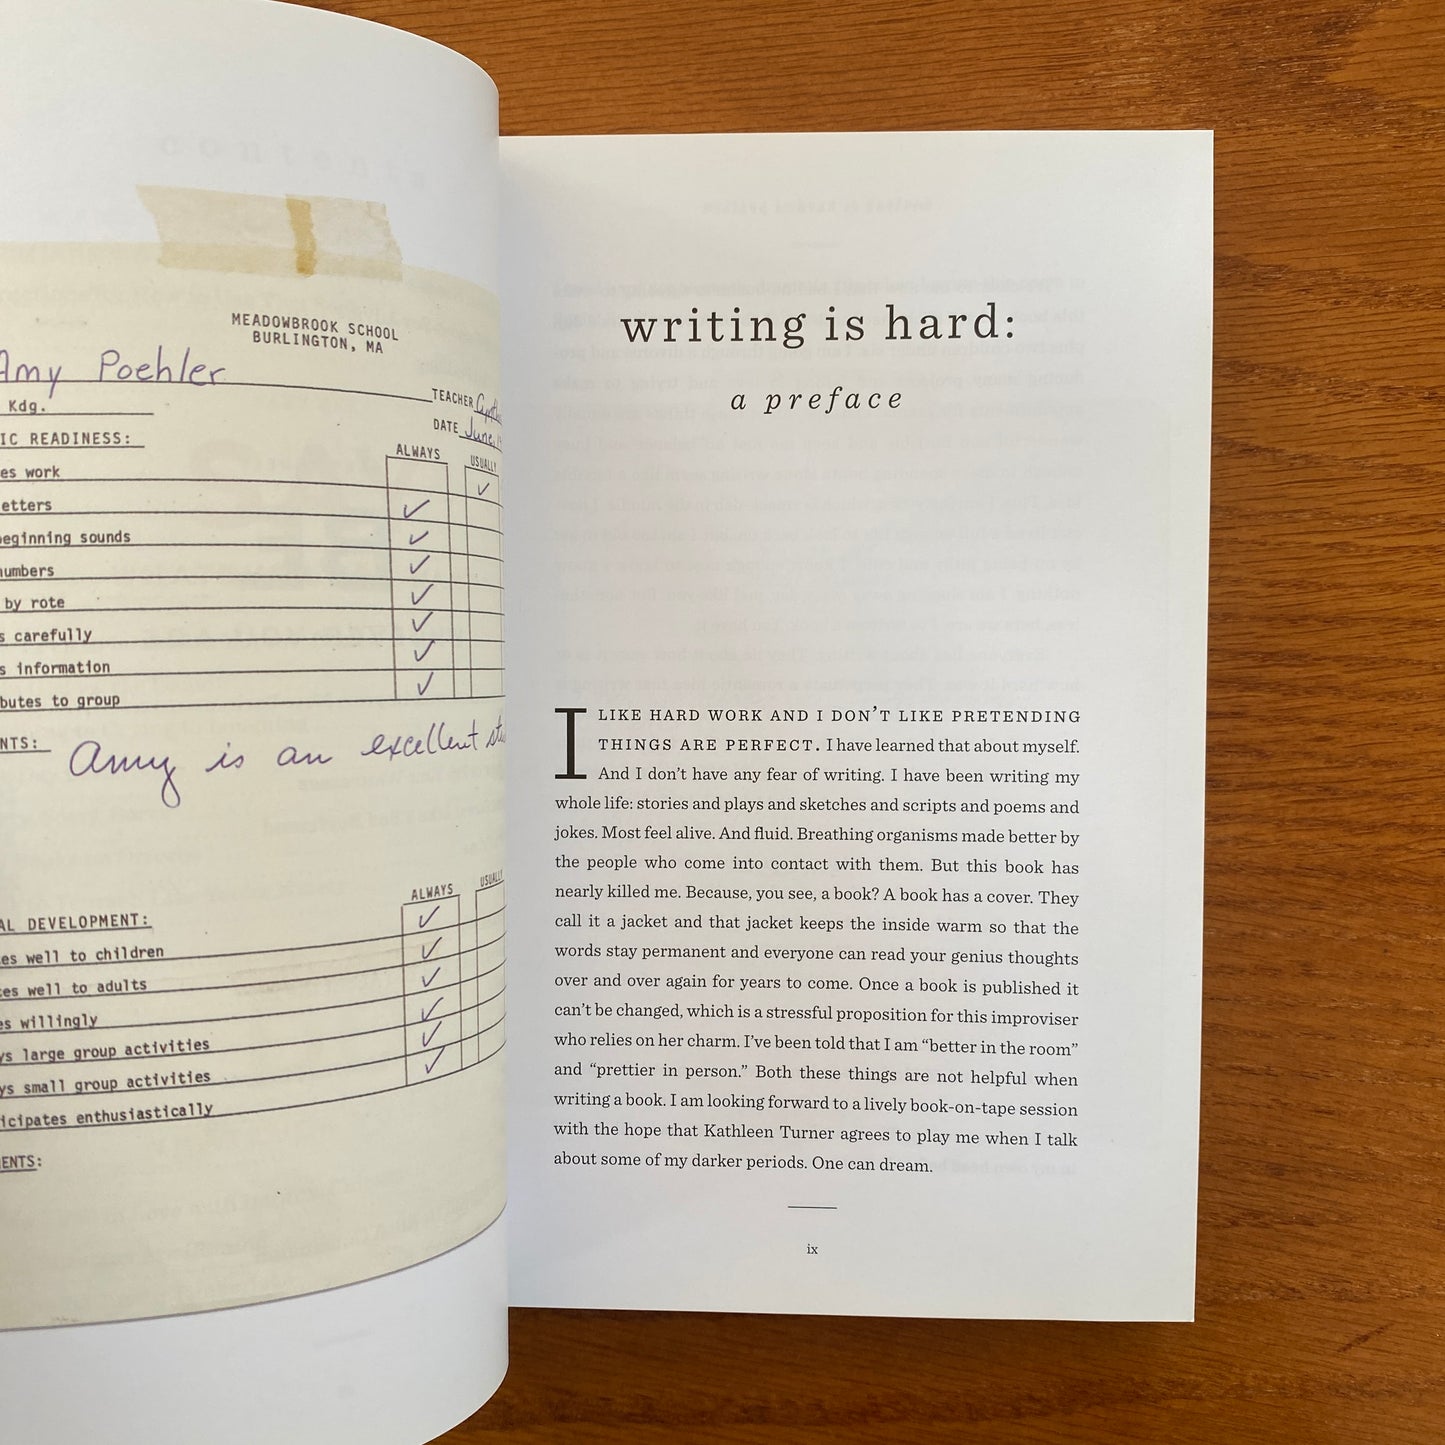 MEADOWBROOK SCHOOL
BURLINGTON, MA
Amy Poehler
TEACHER
Kdg.
DATE June,
IC READINESS:
ALWAYS USUALLY
es work
etters
beginning sounds
numbers
by rote
s carefully
s information
butes to group
NTS: Amy is an excellent
ALWAYS USUALLY
AL DEVELOPMENT:
es well to children
tes well to adults
es willingly
ys large group activities
ys small group activities
icipates enthusiastically
ENTS:
writing is hard:
a preface
I LIKE HARD WORK AND I DON’T LIKE PRETENDING
THINGS ARE PERFECT. I have learned that about myself.
And I don’t have any fear of writing. I have been writing my
whole life: stories and plays and sketches and scripts and poems and
jokes. Most feel alive. And fluid. Breathing organisms made better by
the people who come into contact with them. But this book has
nearly killed me. Because, you see, a book? A book has a cover. They
call it a jacket and that jacket keeps the inside warm so that the
words stay permanent and everyone can read your genius thoughts
over and over again for years to come. Once a book is published it
can’t be changed, which is a stressful proposition for this improviser
who relies on her charm. I’ve been told that I am “better in the room”
and “prettier in person.” Both these things are not helpful when
writing a book. I am looking forward to a lively book-on-tape session
with the hope that Kathleen Turner agrees to play me when I talk
about some of my darker periods. One can dream.
ix